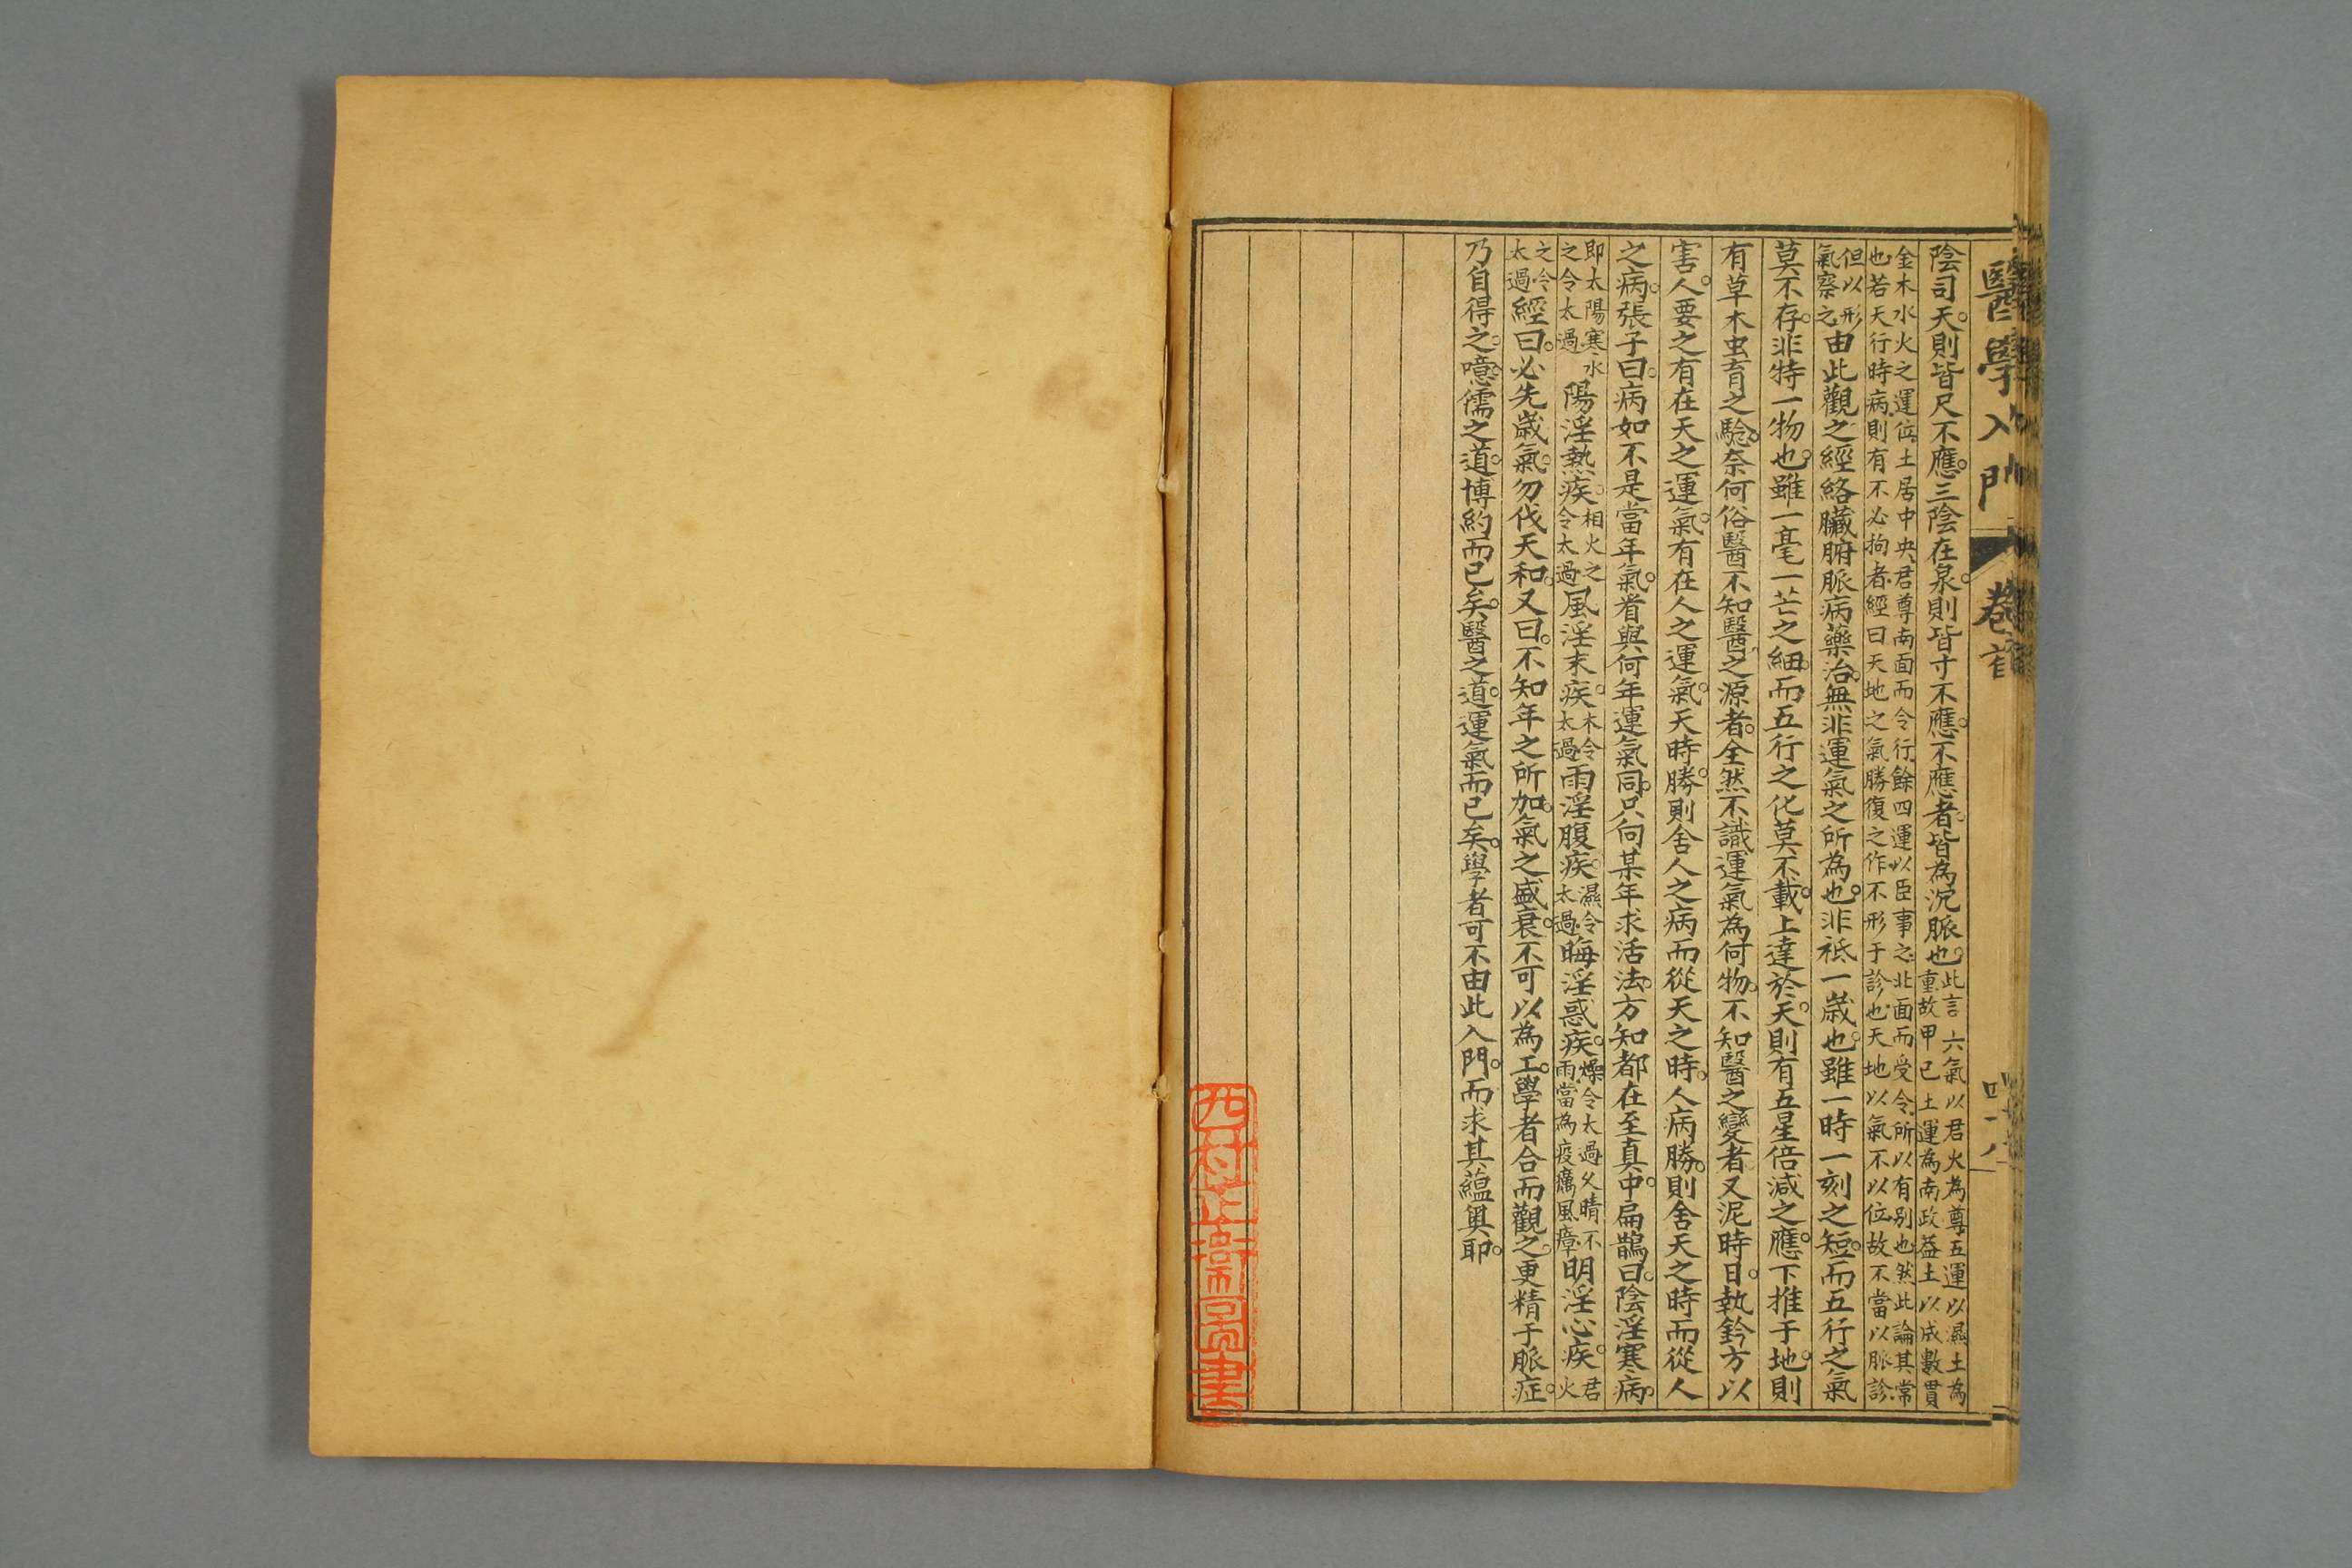 醫學入門 卷首
陰司天。則皆尺不應。三陰在泉。則皆寸不應。不應者。皆為沉脈也。此言六氣以君火為尊五運以濕土為重故甲己土運為南政蓋土以成數貫
金木水火之運位土居中央君尊南面而令行餘四運以臣事之北面而受令所以有別也然此論其常也若天行時病則有不必拘者經曰天地之氣勝復之作不形于診也天地以氣不以位故不當以脈診
但以形氣察之由此觀之經絡臟腑脈病藥治。無非運氣之所為也。非祗一歲也。雖一時一刻之短。而五行之氣
莫不存。非特一物也。雖一毫一芒之細。而五行之化莫不載。上達於天。則有五星倍減之應。下推于地。則
有草木虫育之驗。奈何俗醫不知醫之源者。全然不識運氣為何物。不知醫之變者。又泥時日。執鈐方以
害人。要之有在天之運氣。有在人之運氣。天時勝。則舍人之病而從天之時。人病勝。則舍天之時而從人
之病。張子曰。病如不是當年氣。看與何年運氣同。只向某年求活法。方知都在至真中。扁鵲曰。陰淫寒病。
即太陽寒水之令太過陽淫熱疾。相火之令太過風淫末疾。木令太過雨淫腹疾。濕令太過晦淫惑疾。燥令太過久晴不雨當為疫癘風瘴明淫心疾。君火
之令太過經曰。必先歲氣。勿伐天和。又曰。不知年之所加。氣之盛衰。不可以為工。學者合而觀之。更精于脈症。
乃自得之。噫。儒之道。博約而已矣。醫之道。運氣而已矣。學者可不由此入門。而求其蘊奧耶。